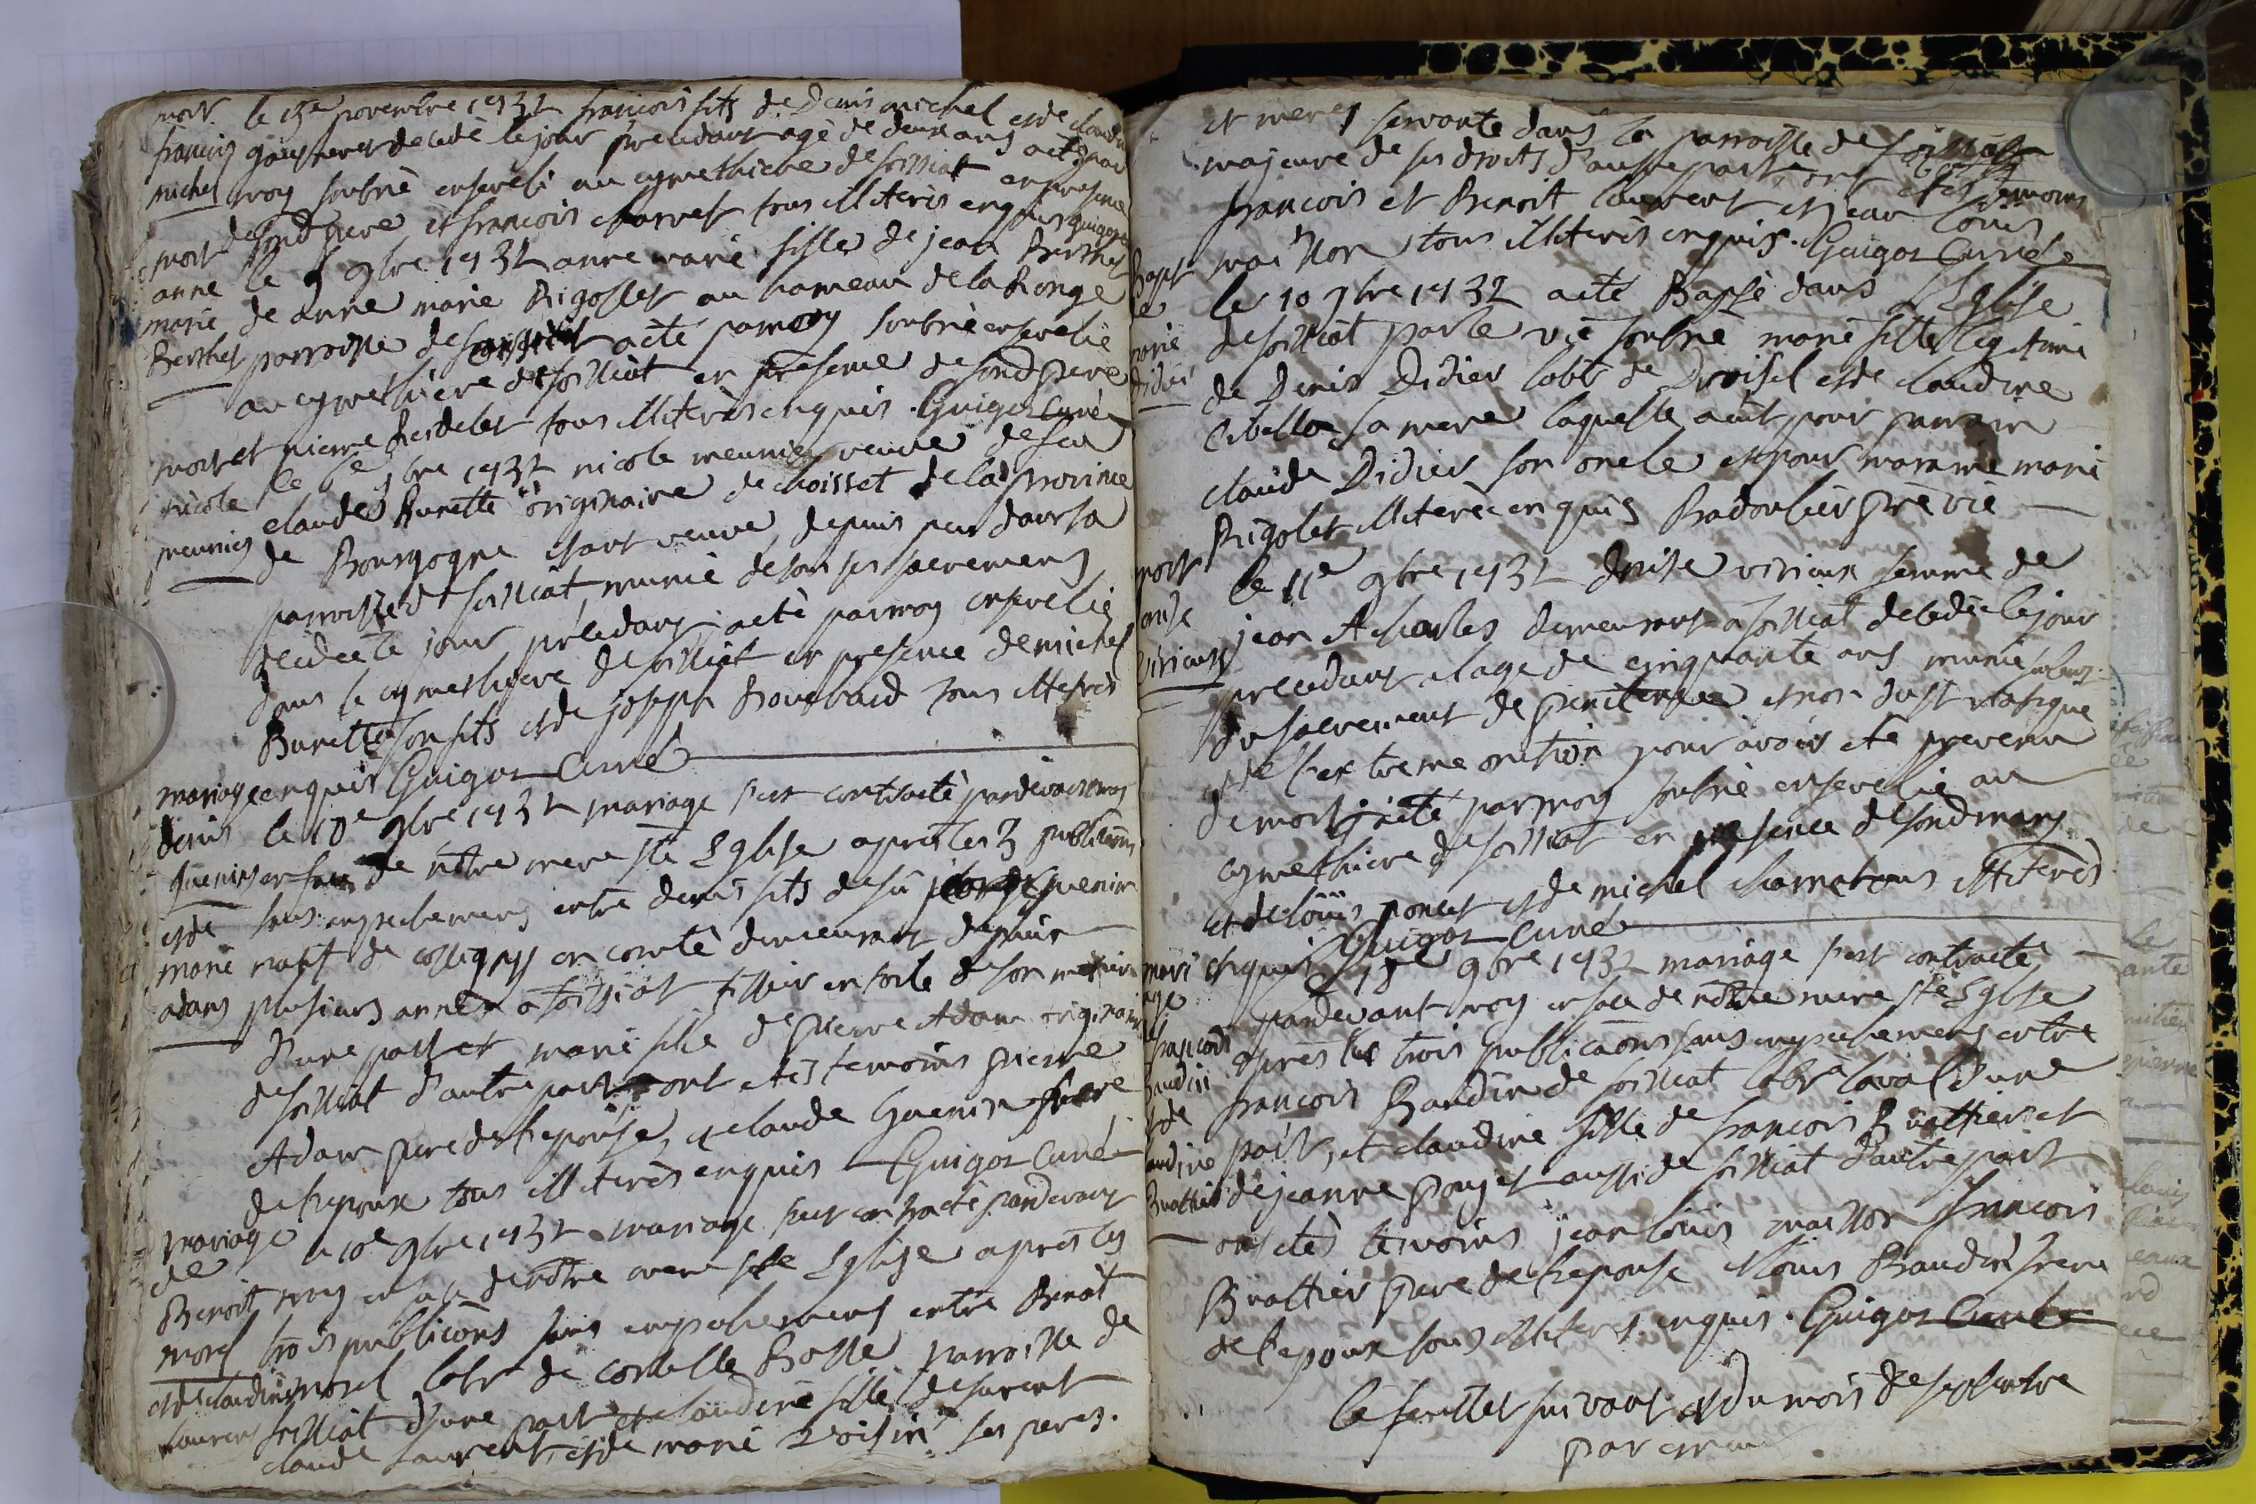 mort le 13e novembre 1732 francois fils de Denis michel et de claudine
francois gouverer decedé le jour precedant agé de deux ans a eté par
michel moy soubné enseveli au cymethiere de foissiat en presence
desond pere et francois charvet tous illiterés enquis guigoz
mort le 9 9bre 1732 anne marie fille de jean Berthet
anne
marie de anne marie Rigollet au hameau de la Ronge
Berthet parroisse de foissiat a eté par moy soubné ensevelie
au cymethiere de foissiat en presence de sond pere
et pierre Perdelet tous illiterés enquis. Guigoz Curé
mort le 6e 9bre 1732 nicole meunier veuve de feu
nicole claude Burette originaire de choisset de la province
meunier de Bourgogne estant veuve depuis peu dans la
parroisse de foissiat munie de tous ses sacremens
decedee le jour precedant a eté par moy ensevelie
dans le cymethiere de foissiat en presence de michel
Burette son fils et de joseph Bouchard tous illiterés
mariage enquis Guigoz Curé
denis le 10e 9bre 1732 mariage s'est contracté pardevant moy
Guenin en face de nôtre mere ste Eglise apres les 3 publicaons
et de sans empechemens entre denis fils de fû Guenin
marie natif de colligny en comté demeurant depuis
adam plusieurs année a foissiat tissier en toile de son metier
d'une part et marie fille de pierre Adam originaire
de foissiat d'autre part ont etes temoins pierre
Adam pere de l'epouse, et claude Guenin frere
de l'epoux tous illiterés enquis Guigoz Curé
mariage le 10e 9bre 1732 mariage s'est contracté pardevant
de
Benoit moy en face de nôtre mere ste Eglise apres les
morel trois publicaons sans empechemens entre Benoit
et de claudine morel labr de corcelle Basse parroisse de
laurent foissiat d'une part et claudine fille de laurent
claude laurent, et de marie Voisin ses peres.
et meres servante dans la parroisse de foissiat
majeure de ses droits d'autre part ont etes temoins
francois et Benoit laurent et jean louis
maillon tous illiterés enquis. Guigoz Curé
Bapt le 10 9bre 1732 a eté Baptisé dans L'Eglise
de
marie de foissiat par le vic soubné marie fille legitime
didier de Denis Didier labr de Droisel et de claudine
Cibelle sa mere laquelle a eut pour parrain
claude Didier son oncle et pour marraine marie
Rigolet illiterée enquis Badoulier pre vic
mort le 11e 9bre 1732 denise virieux femme de
denise jean A charles demeurant a foissiat decedée le jour
virieux precedant a l'age de cinquante ans munie
du sacrement de penitence et non du st viatique
et l'extreme onction pour avoir eté prevenu
de mort a eté par moy soubné ensevelie au
cymethiere de foissiat en presence de sond mary
et de louis poncet et de michel charnat tous illiterés
enquis Guigoz Curé
mariage le 18e 9bre 1732 mariage s'est contracté
pardevant moy en face de nôtre mere ste Eglise
francois apres les trois publicaons sans empechemens entre
Baudin francois Baudin de foissiat labr laval d'une
et de
claudine part, et claudine fille de francois Buattier et
Buattier de jeanne pouget aussi de foissiat d'autre part
ont etés temoins jean louis maillon francois
Buattier pere de l'epouse et louis Baudin frere
de l'epoux tous illiterés enquis. Guigoz Curé
le feuillet suivant est du mois de septembre
par erreur